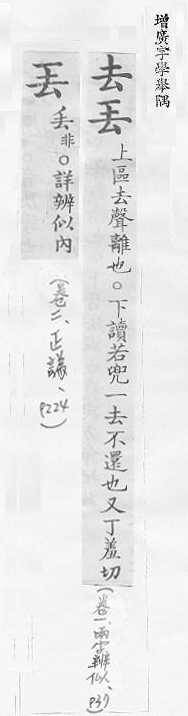 增廣字學舉隅
去丟
上區去聲離也。下讀若兜一去不還也又丁羞切
(卷一、兩字辨似、P37)
丟
丢非。詳辨似內
(卷二、正譌、P224)